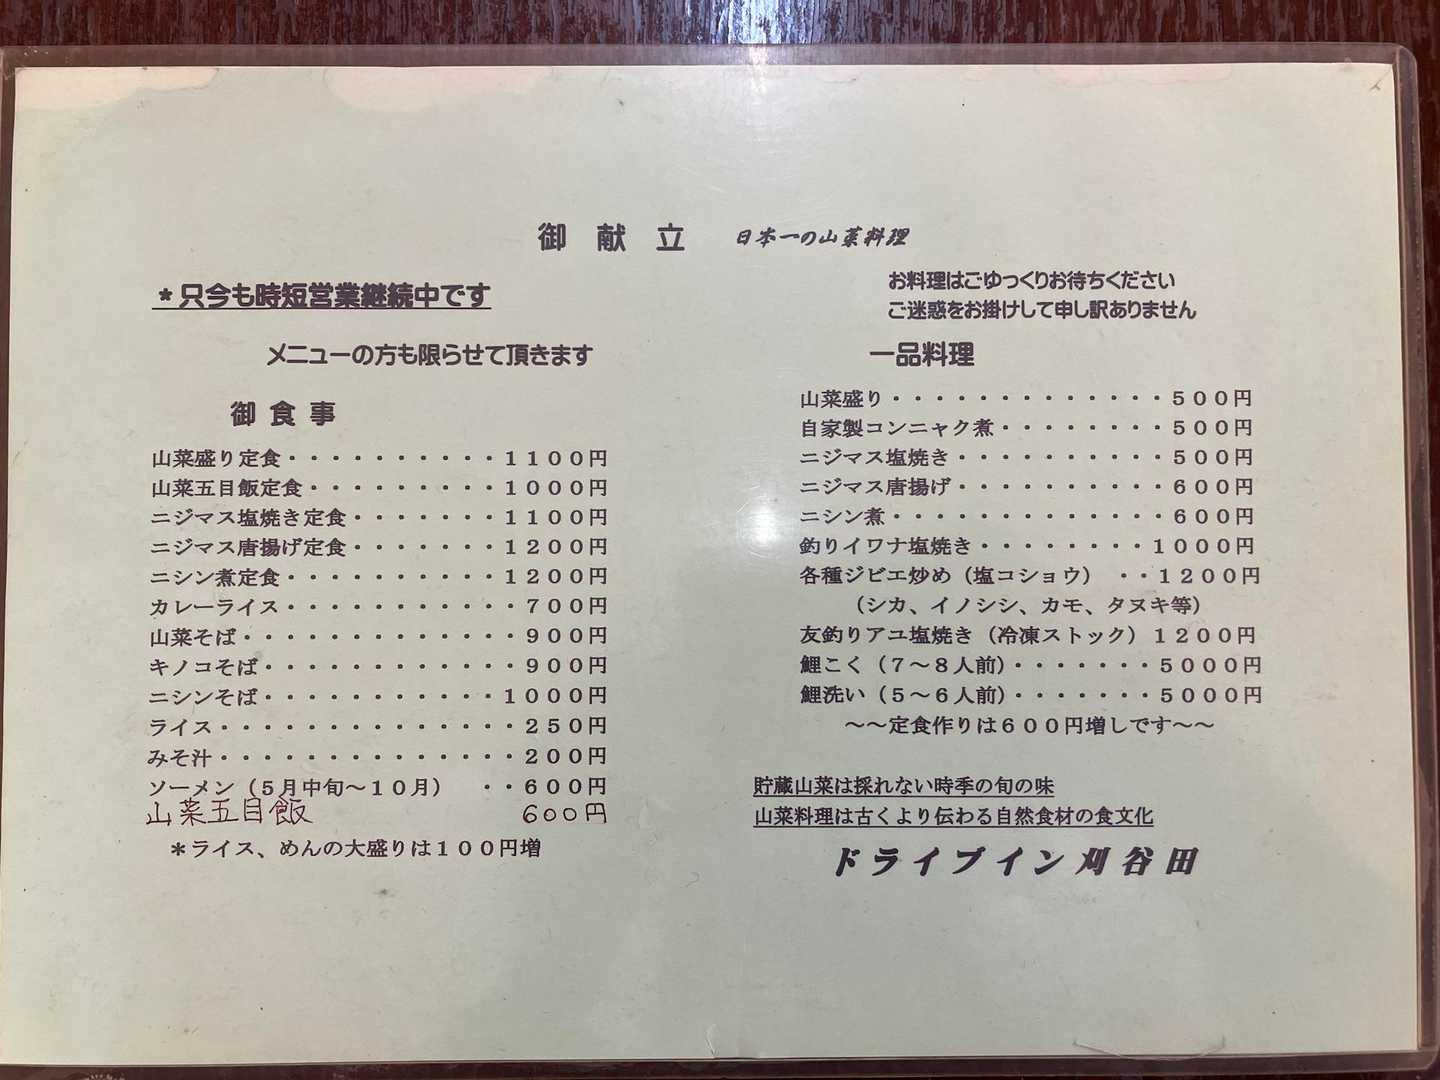 御献立 日本一の山菜料理
＊只今も時短営業継続中です
メニューの方も限らせて頂きます
御食事
山菜盛り定食・・・・・・・・・・１１００円
山菜五目飯定食・・・・・・・・・１０００円
ニジマス塩焼き定食・・・・・・・１１００円
ニジマス唐揚げ定食・・・・・・・１２００円
ニシン煮定食・・・・・・・・・・１２００円
カレーライス・・・・・・・・・・・７００円
山菜そば・・・・・・・・・・・・・９００円
キノコそば・・・・・・・・・・・・９００円
ニシンそば・・・・・・・・・・・１０００円
ライス・・・・・・・・・・・・・・２５０円
みそ汁・・・・・・・・・・・・・・２００円
ソーメン（５月中旬～１０月） ・・６００円
山菜五目飯 600円
＊ライス、めんの大盛りは１００円増
お料理はごゆっくりお待ちください
ご迷惑をお掛けして申し訳ありません
一品料理
山菜盛り・・・・・・・・・・・・・５００円
自家製コンニャク煮・・・・・・・・５００円
ニジマス塩焼き・・・・・・・・・・５００円
ニジマス唐揚げ・・・・・・・・・・６００円
ニシン煮・・・・・・・・・・・・・６００円
釣りイワナ塩焼き・・・・・・・・１０００円
各種ジビエ炒め（塩コショウ） ・・１２００円
（シカ、イノシシ、カモ、タヌキ等）
友釣りアユ塩焼き（冷凍ストック）１２００円
鯉こく（７～８人前）・・・・・・・５０００円
鯉洗い（５～６人前）・・・・・・・５０００円
～～定食作りは６００円増しです～～
貯蔵山菜は採れない時季の旬の味
山菜料理は古くより伝わる自然食材の食文化
ドライブイン刈谷田